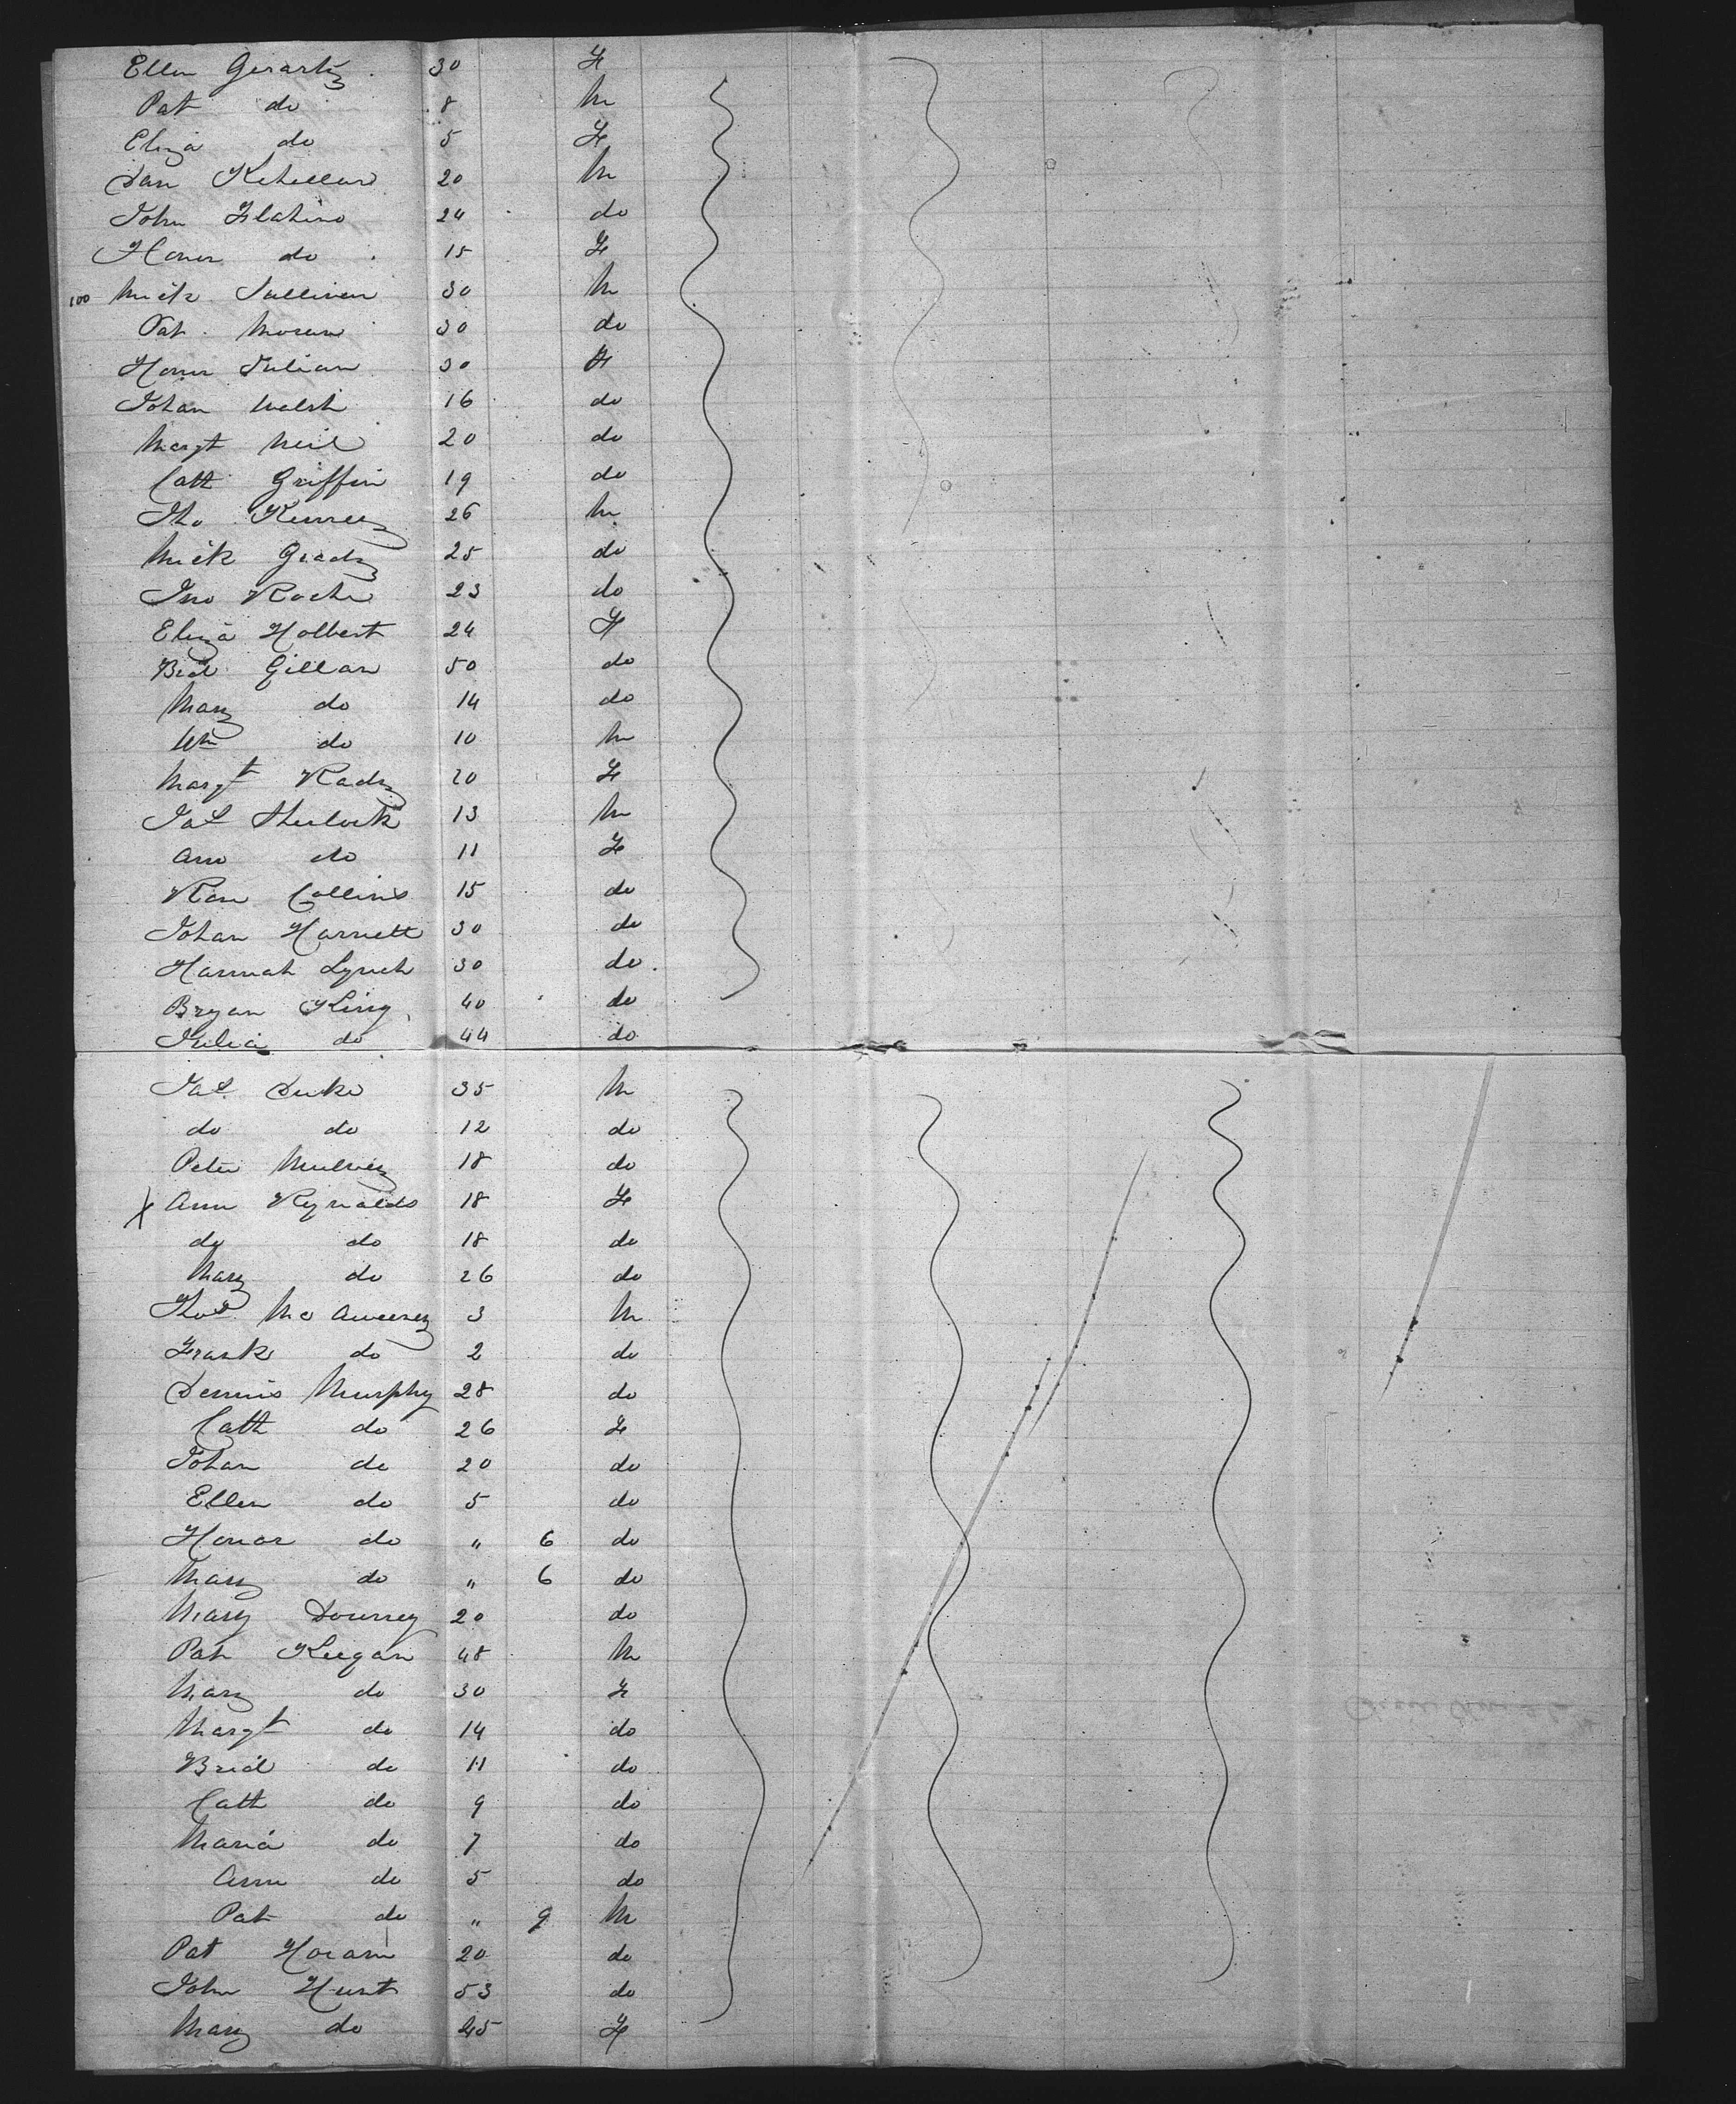 Ellen Gerarty 30 F
Pat do 8 M
Eliza do 5 F
Dan 20 M
John 24 do
Honor do 15 F
100 Mick Sullivan 30 M
Pat Moran 30 do
Honor Julian 30 F
Johan Walsh 16 do
Margt Neil 20 do
Cath Griffin 19 do
Tho 26 M
Mick Grady 25 do
Jno Roche 23 do
Eliza Holbert 24 F
Brid Gillan 50 do
Mary do 14 do
Wm do 10 M
Margt Rady 20 F
Jas Sherlock 13 M
Ann do 11 F
Rose Collins 15 do
Johan Harnett 30 do
Hannah Lynch 30 do
Bryan King 40 do
Julia do 44 do
Jas Duke 35 M
do do 12 do
Peter Mulvey 18 do
X Ann Reynolds 18 F
do do 18 do
Mary do 26 do
Thos Mc Aweeney 3 M
Frank do 2 do
Dennis Murphy 28 do
Cath do 26 F
Johan do 20 do
Ellen do 5 do
Honor do " 6 do
Mary do " 6 do
Mary Downey 20 do
Pat Keegan 48 M
Mary do 30 F
Margt do 14 do
Brid do 11 do
Cath do 9 do
Maria do 7 do
Ann do 5 do
Pat do " 9 M
Pat Horan 20 do
John Hunt 53 do
Mary do 45 F